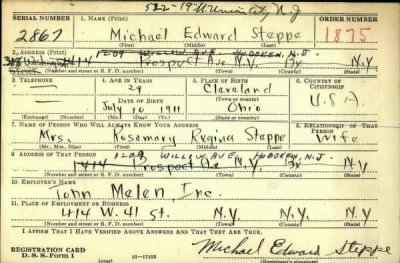 522-19
N.J
SERIAL NUMBER 1. NAME (Print) ORDER NUMBER
2867 Michael Edward Steppe 1875
(First) (Middle) (Last)
2. ADDRESS (Print)
1209 HOBOKEN, N.J.
1414 Prospect Ave N.Y. Bx N.Y
(Number and street or R. F. D. number) (Town) (County) (State)
3. TELEPHONE 4. AGE IN YEARS 5. PLACE OF BIRTH 6. COUNTRY OF CITIZENSHIP
29 Cleveland
DATE OF BIRTH (Town or county)
July 10 1911 Ohio U.S.A.
(Exchange) (Number) (Mo.) (Day) (Yr.) (State or country)
7. NAME OF PERSON WHO WILL ALWAYS KNOW YOUR ADDRESS 8. RELATIONSHIP OF THAT PERSON
Mrs. Rosemary Regina Steppe Wife
(Mr., Mrs., Miss) (First) (Middle) (Last)
9. ADDRESS OF THAT PERSON
1209 WILLOW AVE HOBOKEN N.J.
1414 Prospect Ave N.Y. Bx N.Y.
(Number and street or R. F. D. number) (Town) (County) (State)
10. EMPLOYER'S NAME
John Melen, Inc.
11. PLACE OF EMPLOYMENT OR BUSINESS
414 W. 41 St. N.Y. N.Y. N.Y.
(Number and street or R. F. D. number) (Town) (County) (State)
I AFFIRM THAT I HAVE VERIFIED ABOVE ANSWERS AND THAT THEY ARE TRUE.
REGISTRATION CARD
D. S. S. Form 1 16-17105
Michael Edward Steppe
(Registrant's signature)